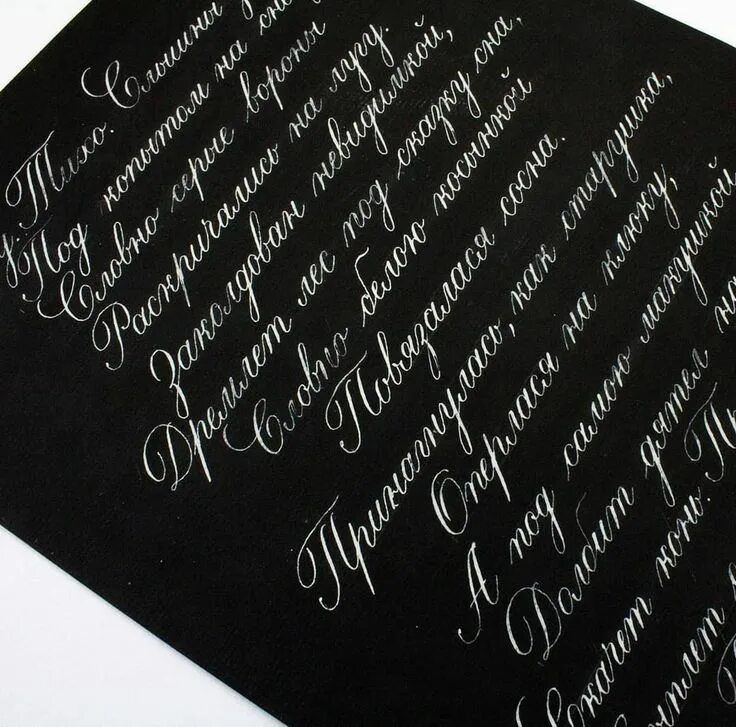 Тихо. Слышины
Под копытом на
Словно серые вороны
Раскричались на лугу.
Заколдован невидимкой,
Дремлет лес под сказку сна,
Словно белою косынкой
Повязалася сосна.
Принагнулась, как старушка,
Оперлася на клюку,
А под самою макушкой
Долбит дятел на
Скачет конь.